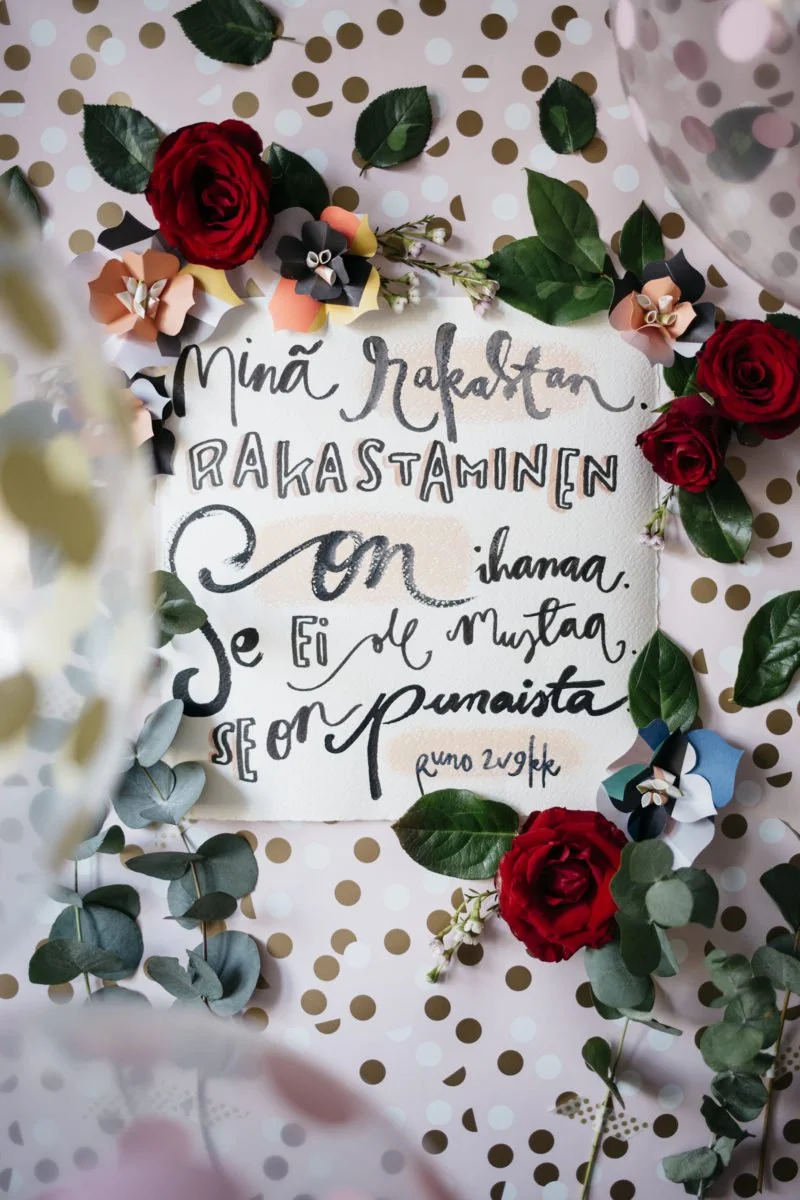 Minä rakastan.
RAKASTAMINEN
on ihanaa.
Se Ei ole mustaa.
SE on punaista
Runo 2v9kk